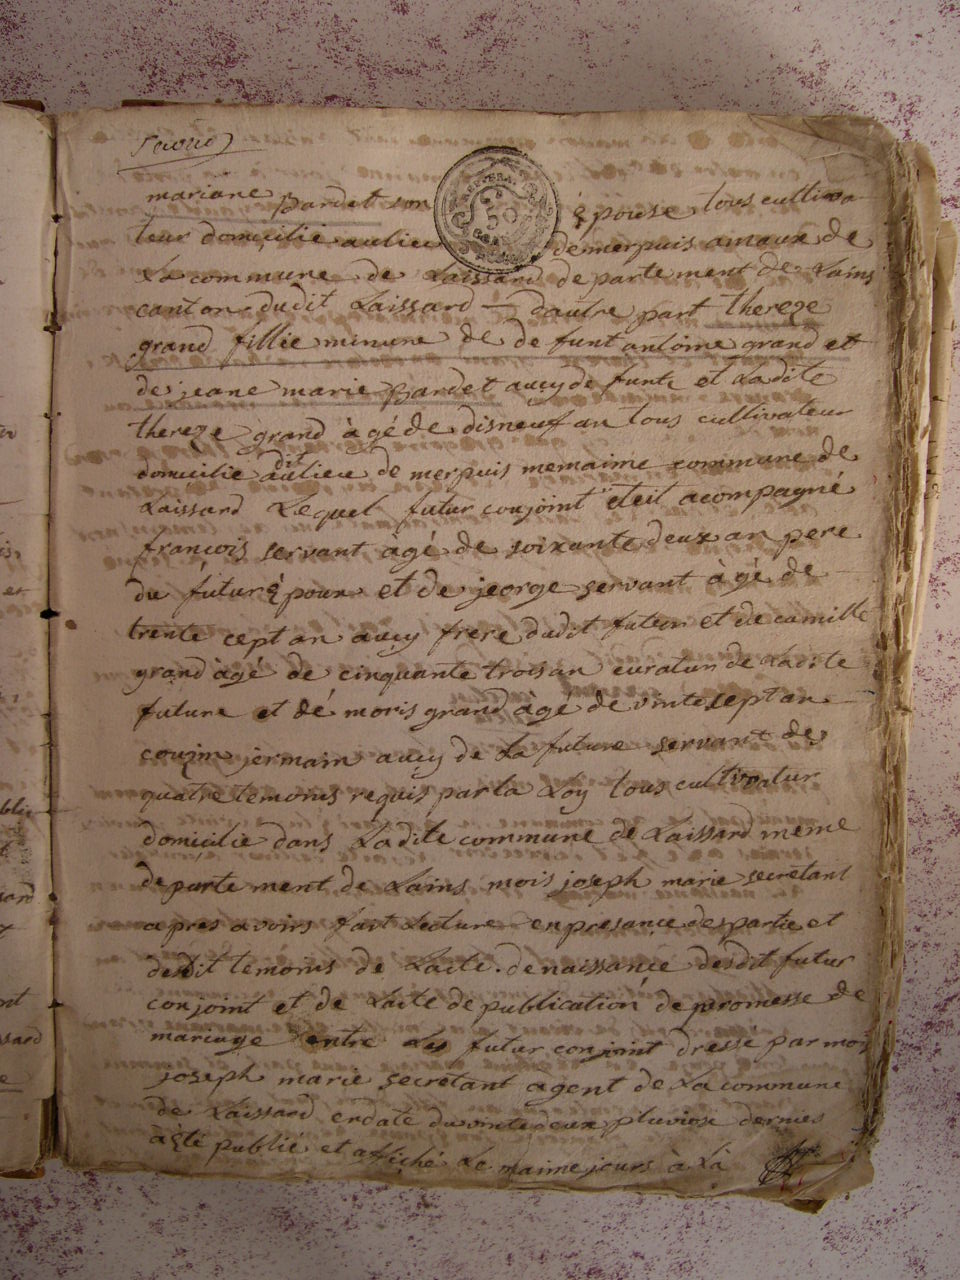 mariane Bardet son épouse tous cultiva
teur domicilié aulieu demerpuis amaux de
La commune de Laissard departement de Lains
canton dudit Laissard dautre part thereze
grand fillie minure de de funt antoine grand et
de jeane marie Bardet aucy de funte et Ladite
thereze grand àgé de disneuf an tous cultivateur
domicilie dit aulieu de merpuis memaime commune de
Laissard Lequel futur conjoint eteit acompagné
francois servant àgé de soixante deux an pere
du futur époux et de jeorge servant àgé de
trente cept an aucy frere dudit futeur et de camille
grand àgé de cinquante trois an curateur de Ladite
future et de moris grand àgé de vinte sept an
couzin jermain aucy de La future servant de
quatre temoins requis par la Loy tous cultivateur
domicilie dans Ladite commune de Laissard meme
departement de Lains mois joseph marie secretant
apres avoirs fait Lecture enpresance des partie et
desdit temoins de Lacte denaissance desdit futur
conjoint et de Lacte de publication de promesse de
mariage entre Les futur conjoint dressé par mois
joseph marie secretant agent de La commune
de Laissard endate du vinte deux pluviose dernies
àété publié et affiché Le maime jours à Là